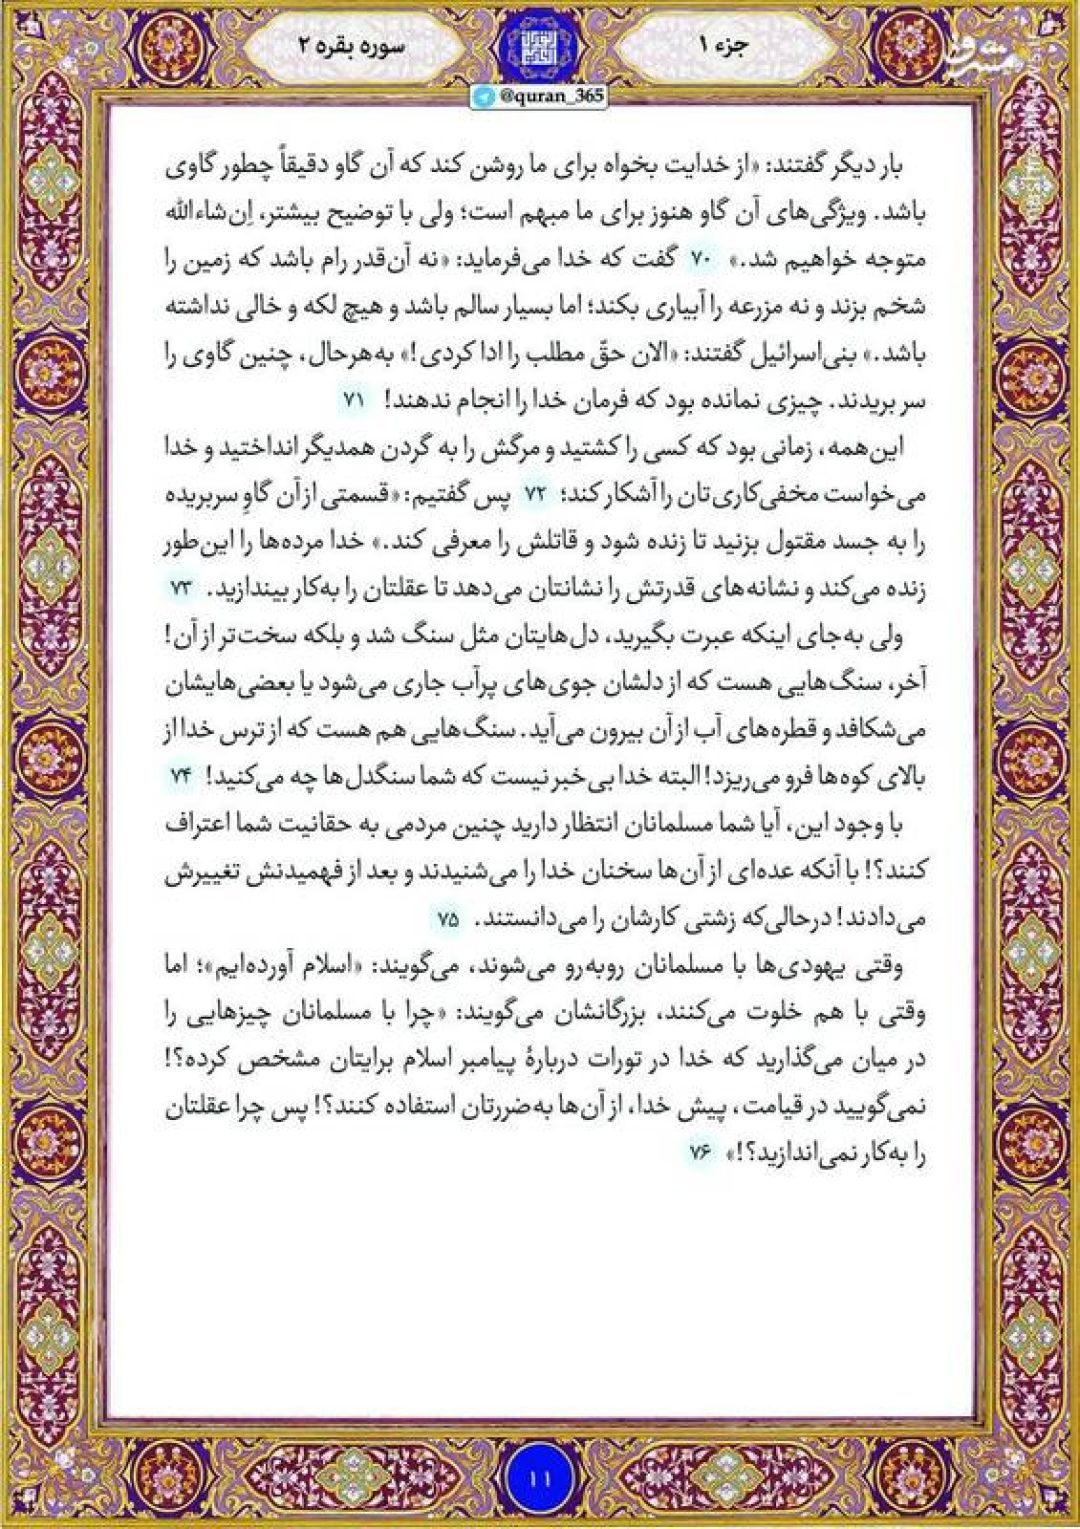 جزء ۱
سوره بقره ۲
@quran_365
بار دیگر گفتند: «از خدایت بخواه برای ما روشن کند که آن گاو دقیقاً چطور گاوی
باشد. ویژگی‌های آن گاو هنوز برای ما مبهم است؛ ولی با توضیح بیشتر، اِن‌شاءالله
متوجه خواهیم شد.» ۷۰ گفت که خدا می‌فرماید: «نه آن‌قدر رام باشد که زمین را
شخم بزند و نه مزرعه را آبیاری بکند؛ اما بسیار سالم باشد و هیچ لکه و خالی نداشته
باشد.» بنی‌اسرائیل گفتند: «الان حقّ مطلب را ادا کردی!» به‌هرحال، چنین گاوی را
سر بریدند. چیزی نمانده بود که فرمان خدا را انجام ندهند! ۷۱
این‌همه، زمانی بود که کسی را کشتید و مرگش را به گردن همدیگر انداختید و خدا
می‌خواست مخفی‌کاری‌تان را آشکار کند؛ ۷۲ پس گفتیم: «قسمتی از آن گاوِ سربریده
را به جسد مقتول بزنید تا زنده شود و قاتلش را معرفی کند.» خدا مرده‌ها را این‌طور
زنده می‌کند و نشانه‌های قدرتش را نشانتان می‌دهد تا عقلتان را به‌کار بیندازید. ۷۳
ولی به‌جای اینکه عبرت بگیرید، دل‌هایتان مثل سنگ شد و بلکه سخت‌تر از آن!
آخر، سنگ‌هایی هست که از دلشان جوی‌های پرآب جاری می‌شود یا بعضی‌هایشان
می‌شکافد و قطره‌های آب از آن بیرون می‌آید. سنگ‌هایی هم هست که از ترس خدا از
بالای کوه‌ها فرو می‌ریزد! البته خدا بی‌خبر نیست که شما سنگدل‌ها چه می‌کنید! ۷۴
با وجود این، آیا شما مسلمانان انتظار دارید چنین مردمی به حقانیت شما اعتراف
کنند؟! با آنکه عده‌ای از آن‌ها سخنان خدا را می‌شنیدند و بعد از فهمیدنش تغییرش
می‌دادند! درحالی‌که زشتی کارشان را می‌دانستند. ۷۵
وقتی یهودی‌ها با مسلمانان روبه‌رو می‌شوند، می‌گویند: «اسلام آورده‌ایم»؛ اما
وقتی با هم خلوت می‌کنند، بزرگانشان می‌گویند: «چرا با مسلمانان چیزهایی را
در میان می‌گذارید که خدا در تورات دربارهٔ پیامبر اسلام برایتان مشخص کرده؟!
نمی‌گویید در قیامت، پیش خدا، از آن‌ها به‌ضررتان استفاده کنند؟! پس چرا عقلتان
را به‌کار نمی‌اندازید؟!» ۷۶
۱۱